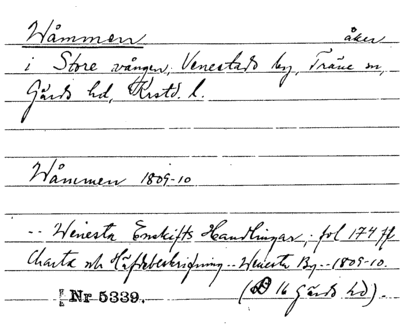 Wåmmen åker
i Store vången, Venestads by, Träne sn,
Gärds hd, Krstd. l.
Wåmmen 1809-10
-- Wenesta Enskifts Handlingar, fol 174 ff
Charta och Häfdebeskrifning -- Wenesta By -- 1809-10.
Nr 5339. (B 16 Gärds hd).